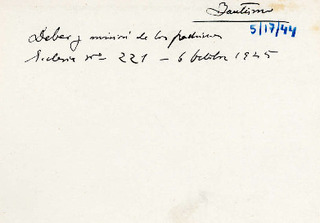 Bautismo
5/17/44
Deber y misión de los padrinos
Ecclesia nº 221 - 6 Octubre 1945